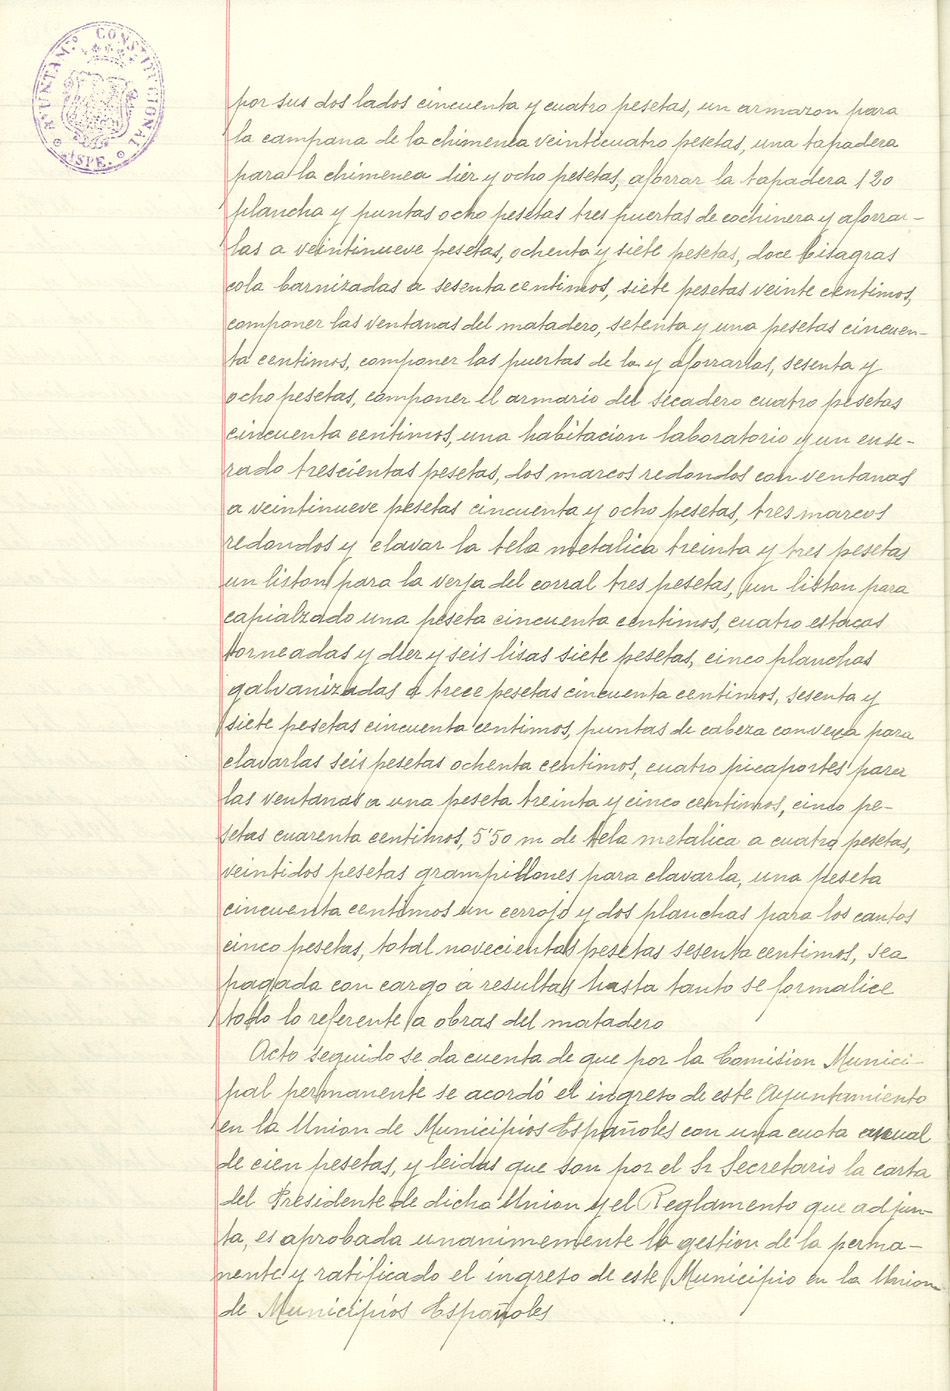 AYUNTAM.º CONSTITUCIONAL
ASPE.
por sus dos lados cincuenta y cuatro pesetas, un armazon para
la campana de la chimenea veinticuatro pesetas, una tapadera
para la chimenea diez y ocho pesetas, aforrar la tapadera 1'20
plancha y puntas ocho pesetas tres puertas de cochinera y aforrar-
las a veintinueve pesetas, ochenta y siete pesetas, doce bisagras
cola barnizadas a sesenta centimos, siete pesetas veinte centimos,
componer las ventanas del matadero, setenta y una pesetas cincuen-
ta centimos, componer las puertas de la y aforrarlas, sesenta y
ocho pesetas, componer el armario del secadero cuatro pesetas
cincuenta centimos, una habitacion laboratorio y un ence-
rado trescientas pesetas, dos marcos redondos con ventanas
a veintinueve pesetas cincuenta y ocho pesetas, tres marcos
redondos y clavar la tela metalica treinta y tres pesetas
un liston para la verja del corral tres pesetas, un liston para
capialzado una peseta cincuenta centimos, cuatro estacas
torneadas y diez y seis lisas siete pesetas, cinco planchas
galvanizadas a trece pesetas cincuenta centimos, sesenta y
siete pesetas cincuenta centimos, puntas de cabeza convexa para
clavarlas seis pesetas ochenta centimos, cuatro picaportes para
las ventanas a una peseta treinta y cinco centimos, cinco pe-
setas cuarenta centimos, 5'50 m de tela metalica a cuatro pesetas,
veintidos pesetas grampillones para clavarla, una peseta
cincuenta centimos un cerrojo y dos planchas para los cantos
cinco pesetas, total novecientas pesetas sesenta centimos, sea
pagada con cargo a resultas hasta tanto se formalice
todo lo referente a obras del matadero
Acto seguido se da cuenta de que por la Comision Munici-
pal permanente se acordó el ingreso de este Ayuntamiento
en la Union de Municipios Españoles con una cuota anual
de cien pesetas, y leidas que son por el Sr Secretario la carta
del Presidente de dicha Union y el Reglamento que adjun-
ta, es aprobada unanimemente la gestion de la perma-
nente y ratificado el ingreso de este Municipio en la Union
de Municipios Españoles